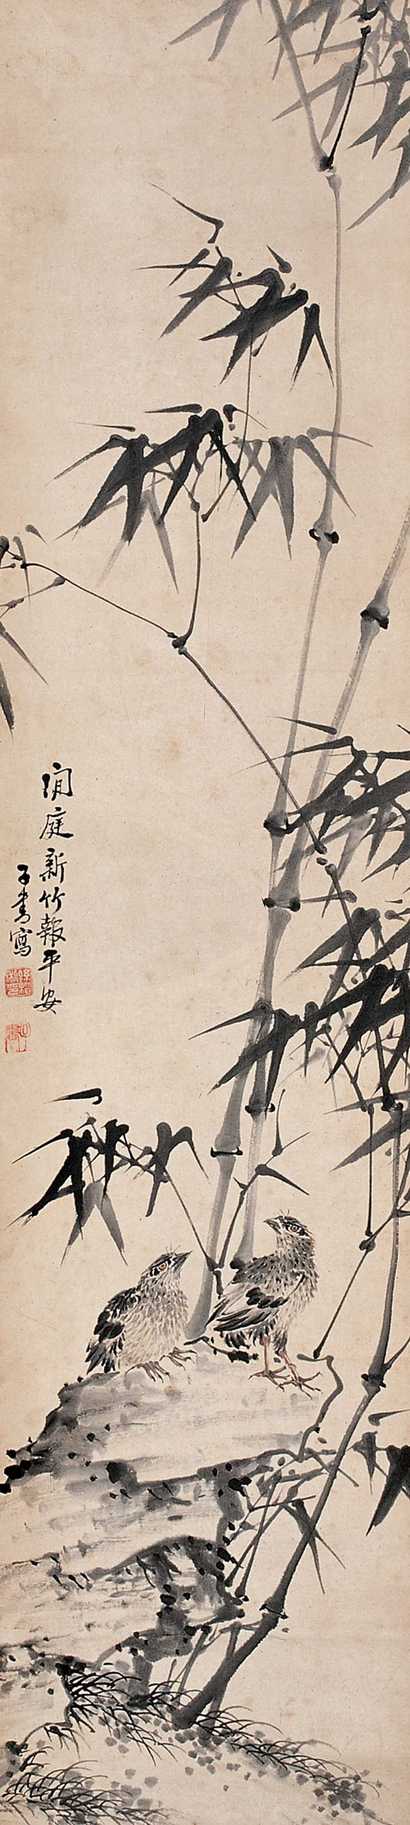 閒庭新竹報平安
子書寫